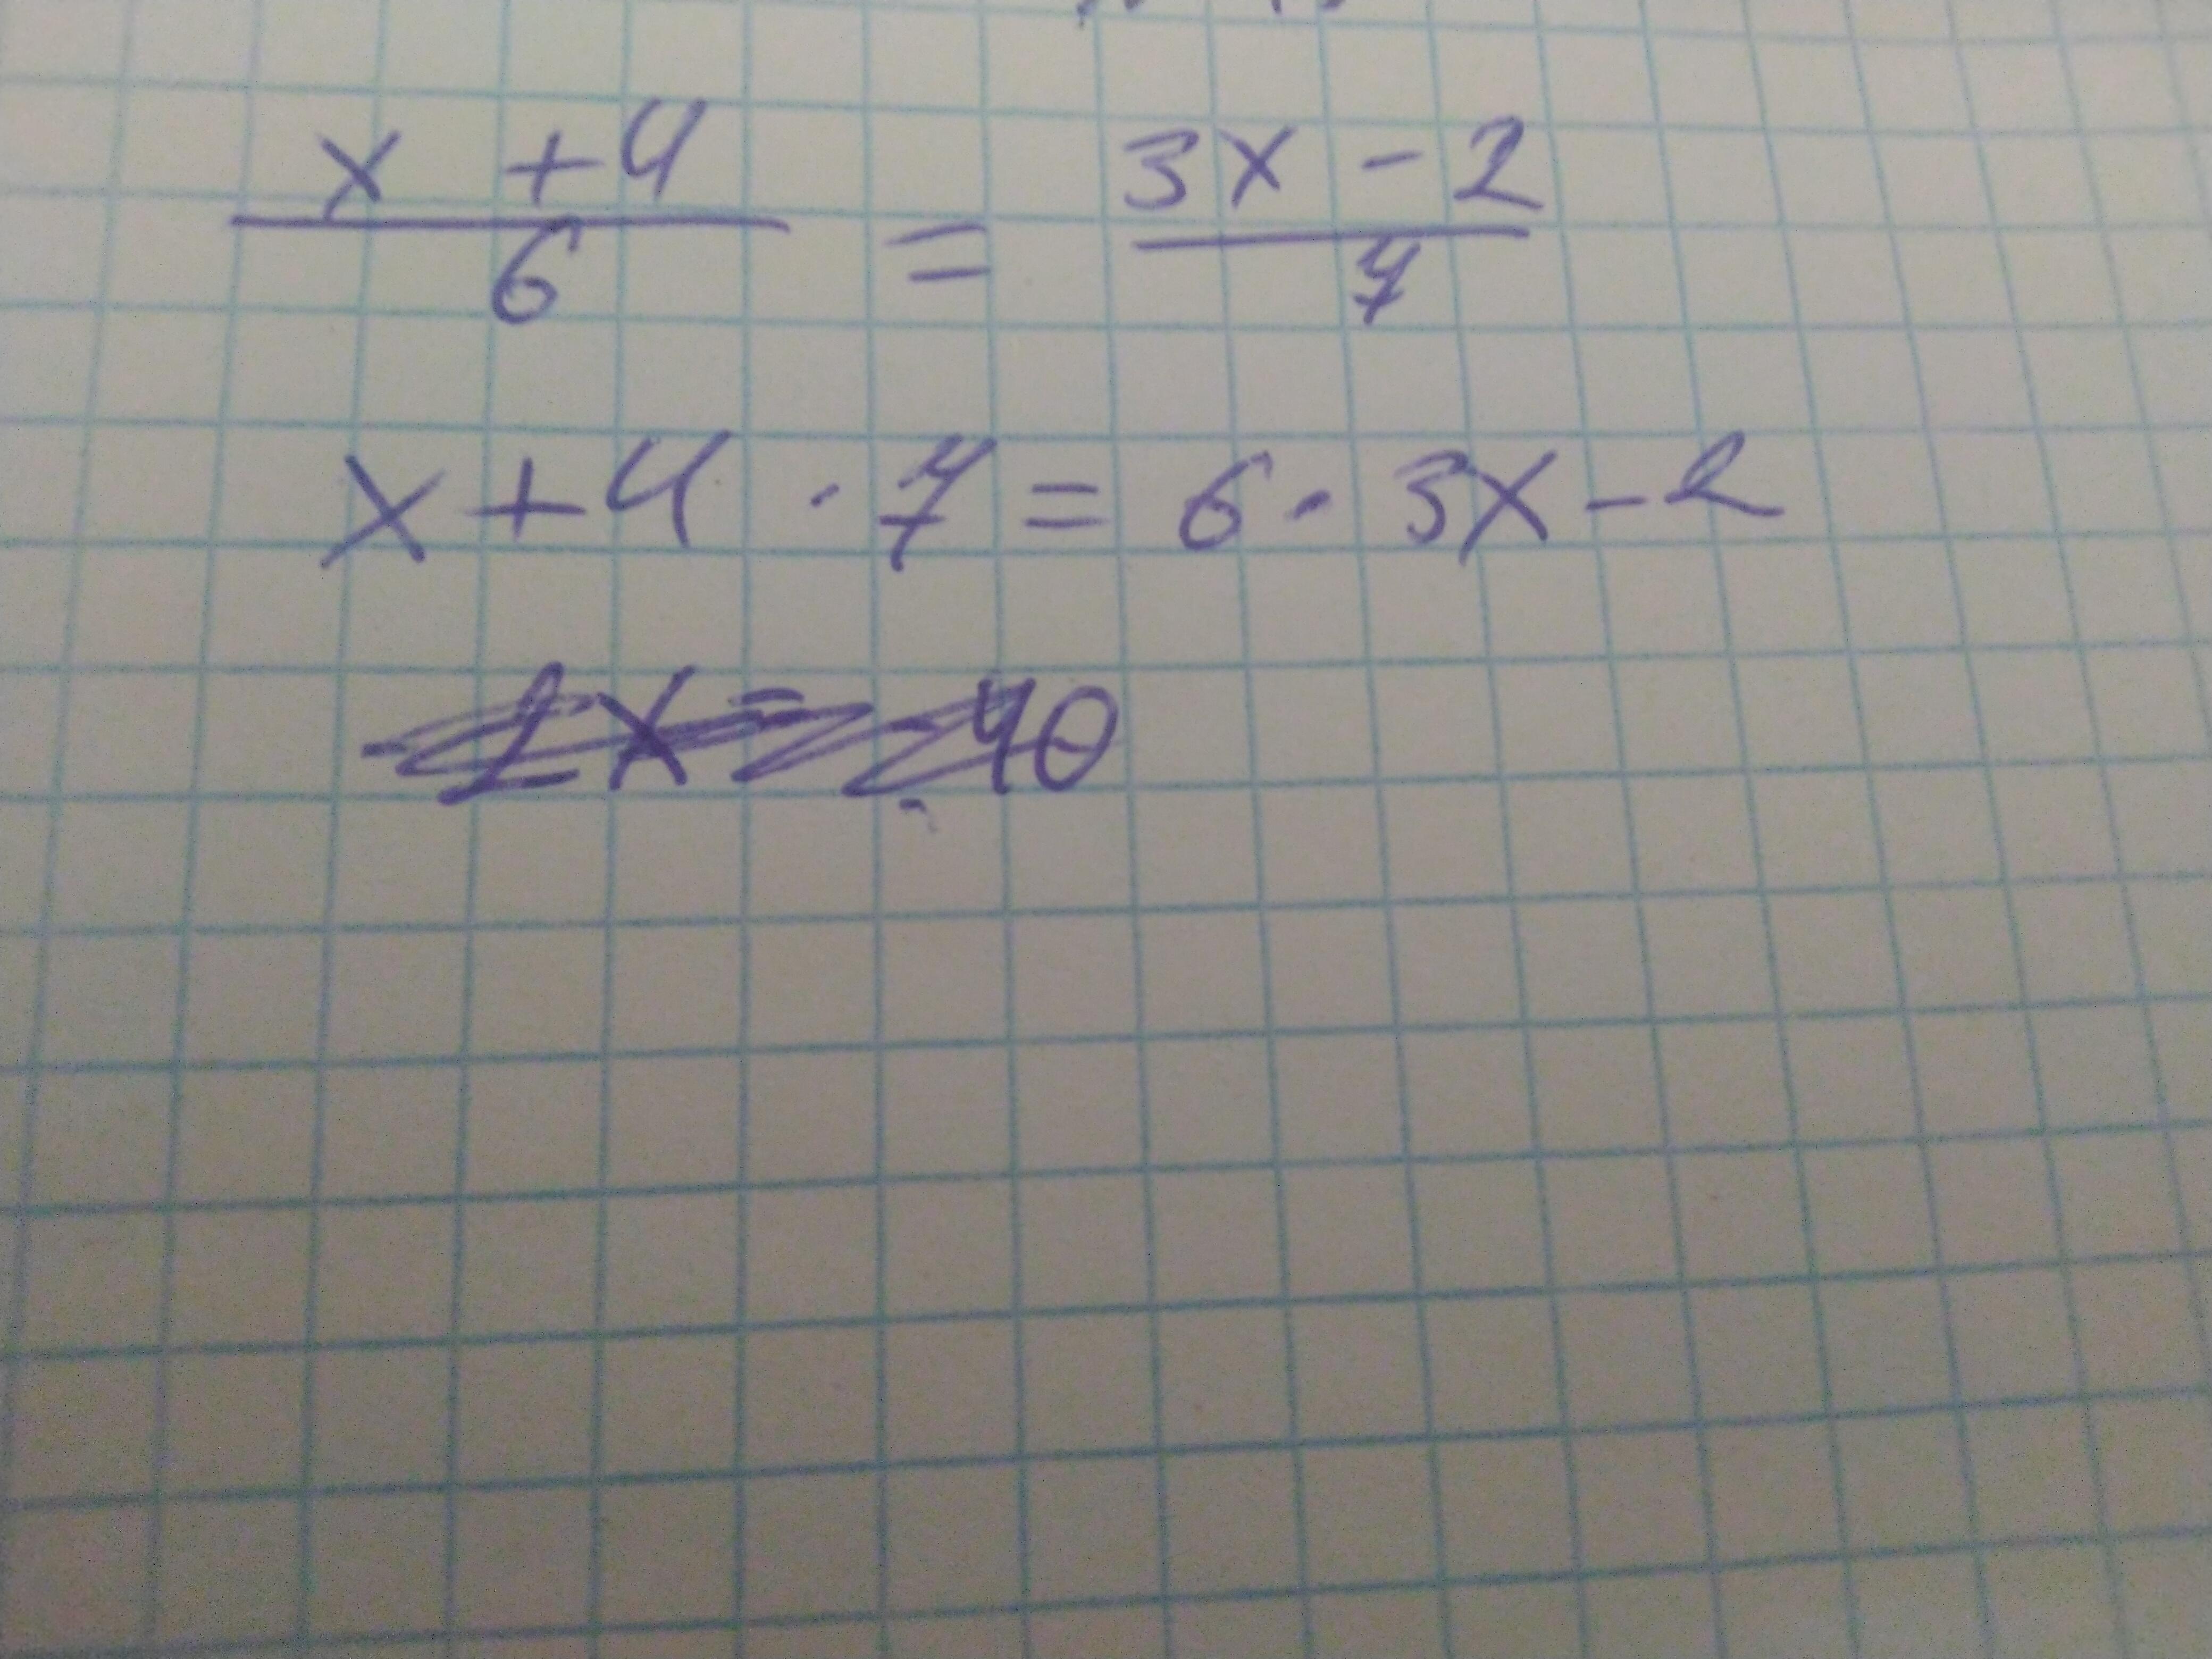 x + 4 = 3x - 2
6 7
x + 4 · 7 = 6 · 3x - 2